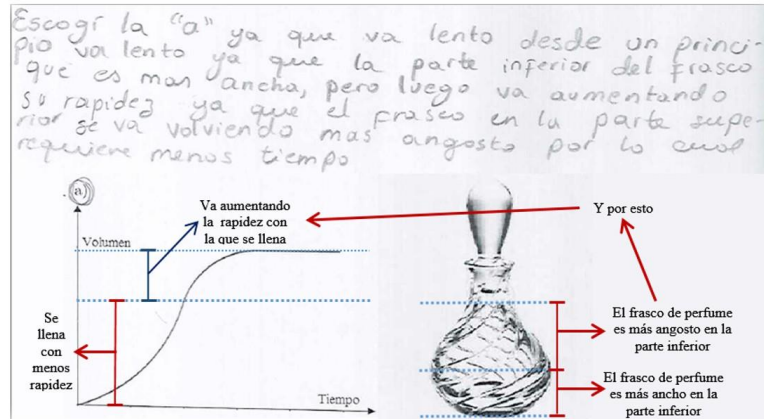 Escogí la "a" ya que va lento desde un princi-
pio va lento ya que la parte inferior del frasco
que es mas ancha, pero luego va aumentando
su rapidez ya que el frasco en la parte supe-
rior se va volviendo mas angosto por lo cual
requiere menos tiempo
a
Va aumentando
la rapidez con
la que se llena
Y por esto
Volumen
Se
llena
con
menos
rapidez
El frasco de perfume
es más angosto en la
parte inferior
El frasco de perfume
es más ancho en la
parte inferior
Tiempo